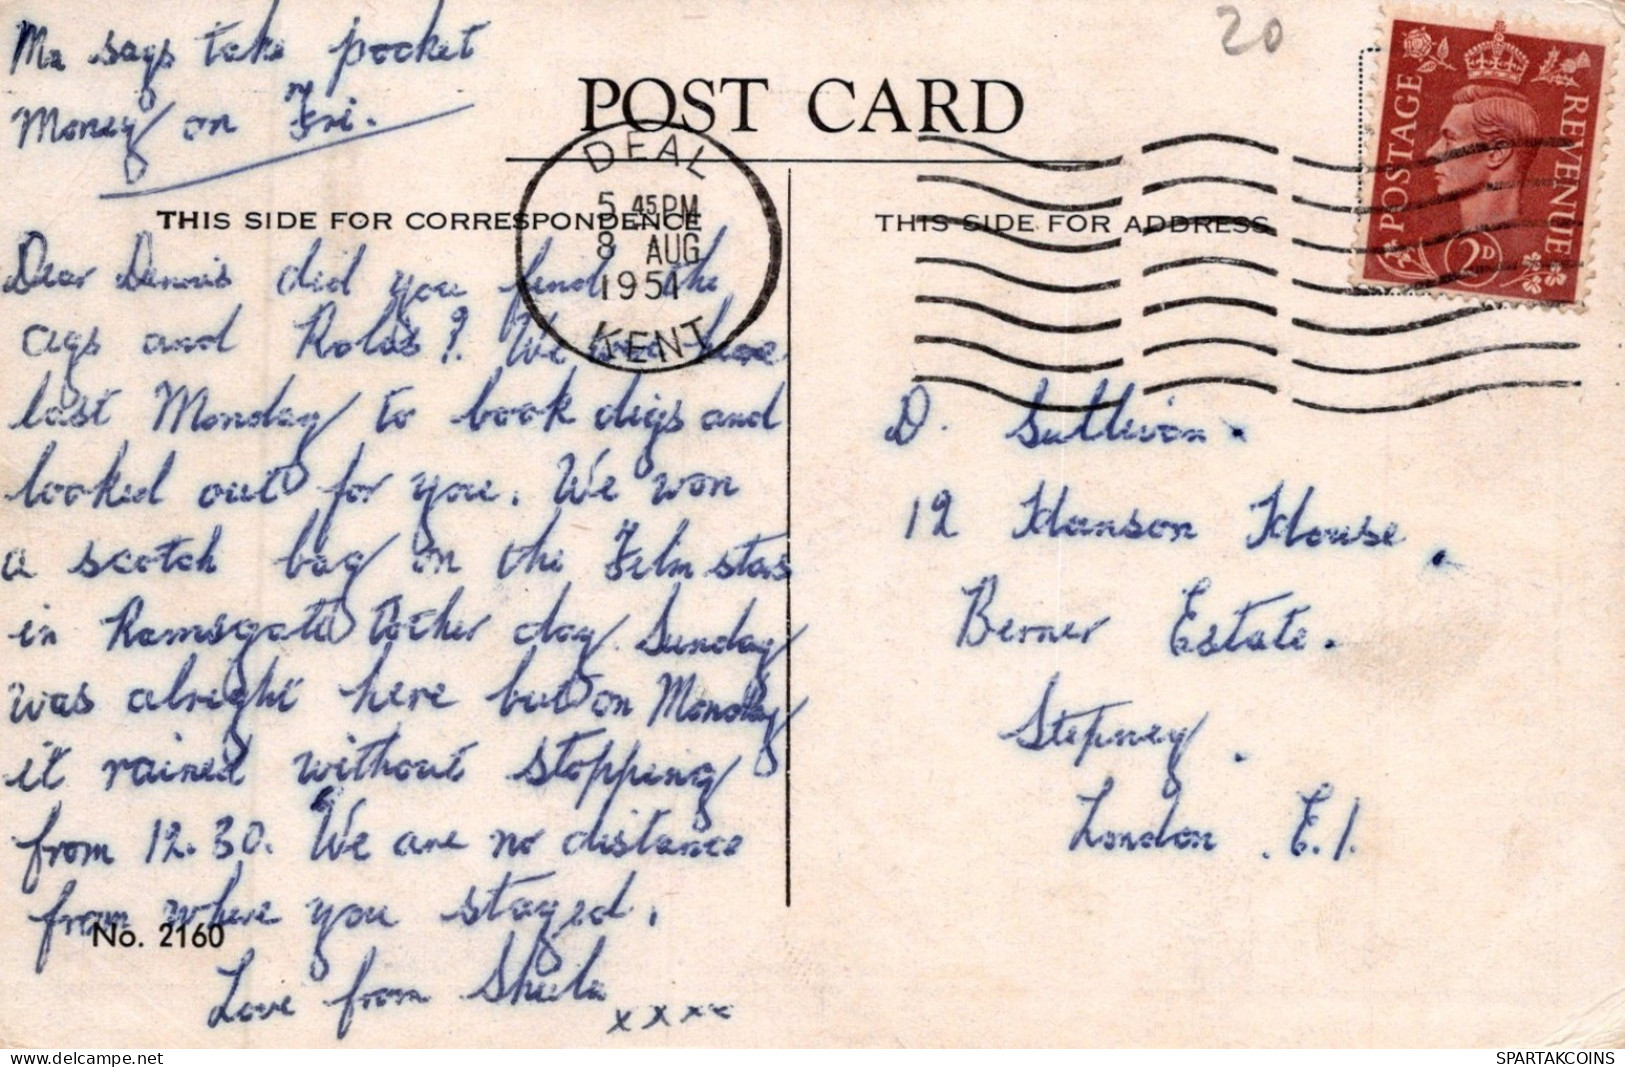 Ma says take pocket
Money on Fri.
20
POST CARD
POSTAGE
REVENUE
2D
DEAL
5 45PM
8 AUG
1951
KENT
THIS SIDE FOR CORRESPONDENCE
THIS SIDE FOR ADDRESS
Dear Dennis did you find the
and Rolos? We here
last Monday to book digs and
looked out for you. We won
a scotch bag on the Film stars
in Ramsgate tother day. Sunday
was alright here but on Monday
it rained without stopping
from 12.30. We are no distance
from where you stayed.
No. 2160
Love from Sheila
x x x x
D. Sullivan.
12 Hanson House.
Berner Estate.
Stepney.
London. E.1.
SPARTAKCOINS
www.delcampe.net